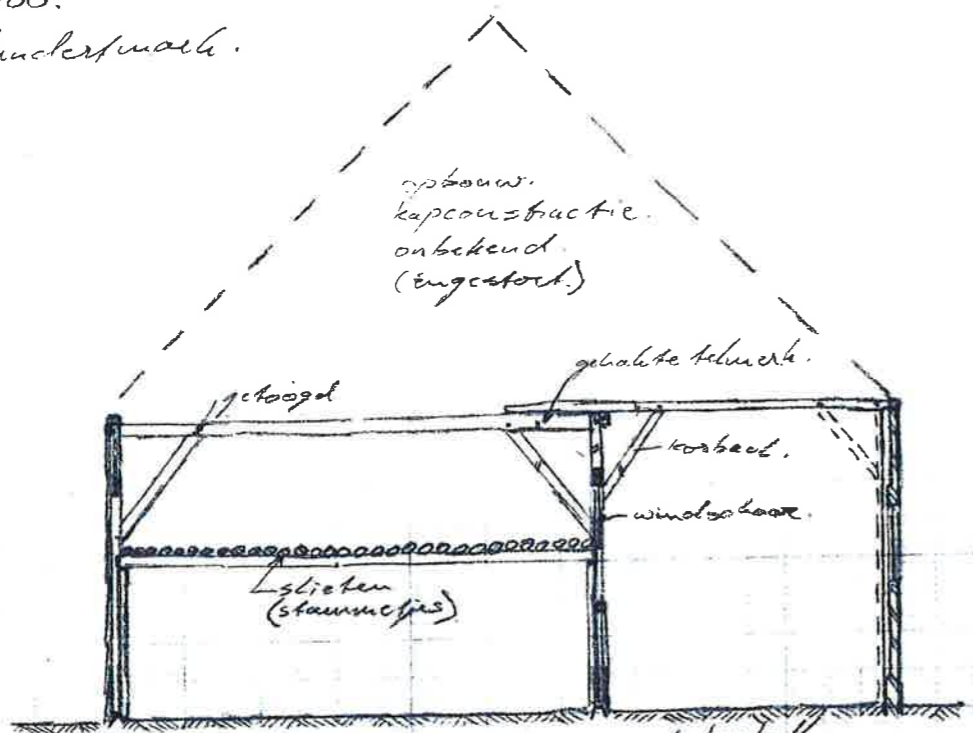 opbouw.
kapconstructie.
onbekend
(ingestort.)
gehakte telmerk.
getoogd
korbeel.
windschoor.
slieten
(stammetjes)